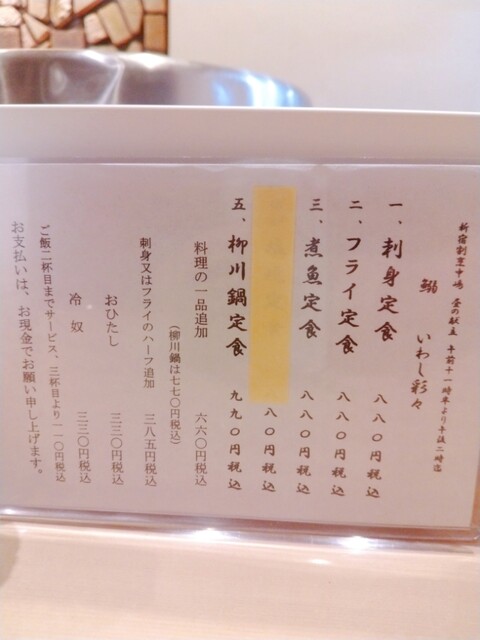 新宿割烹中嶋 昼の献立 午前十一時半より午後二時迄
鰯 いわし彩々
一、刺身定食 八八〇円税込
二、フライ定食 八八〇円税込
三、煮魚定食 八八〇円税込
八〇円税込
五、柳川鍋定食 九九〇円税込
料理の一品追加 六六〇円税込
(柳川鍋は七七〇円税込)
刺身又はフライのハーフ追加 三八五円税込
おひたし 三三〇円税込
冷奴 三三〇円税込
ご飯二杯目までサービス、三杯目より一一〇円税込
お支払いは、お現金でお願い申し上げます。